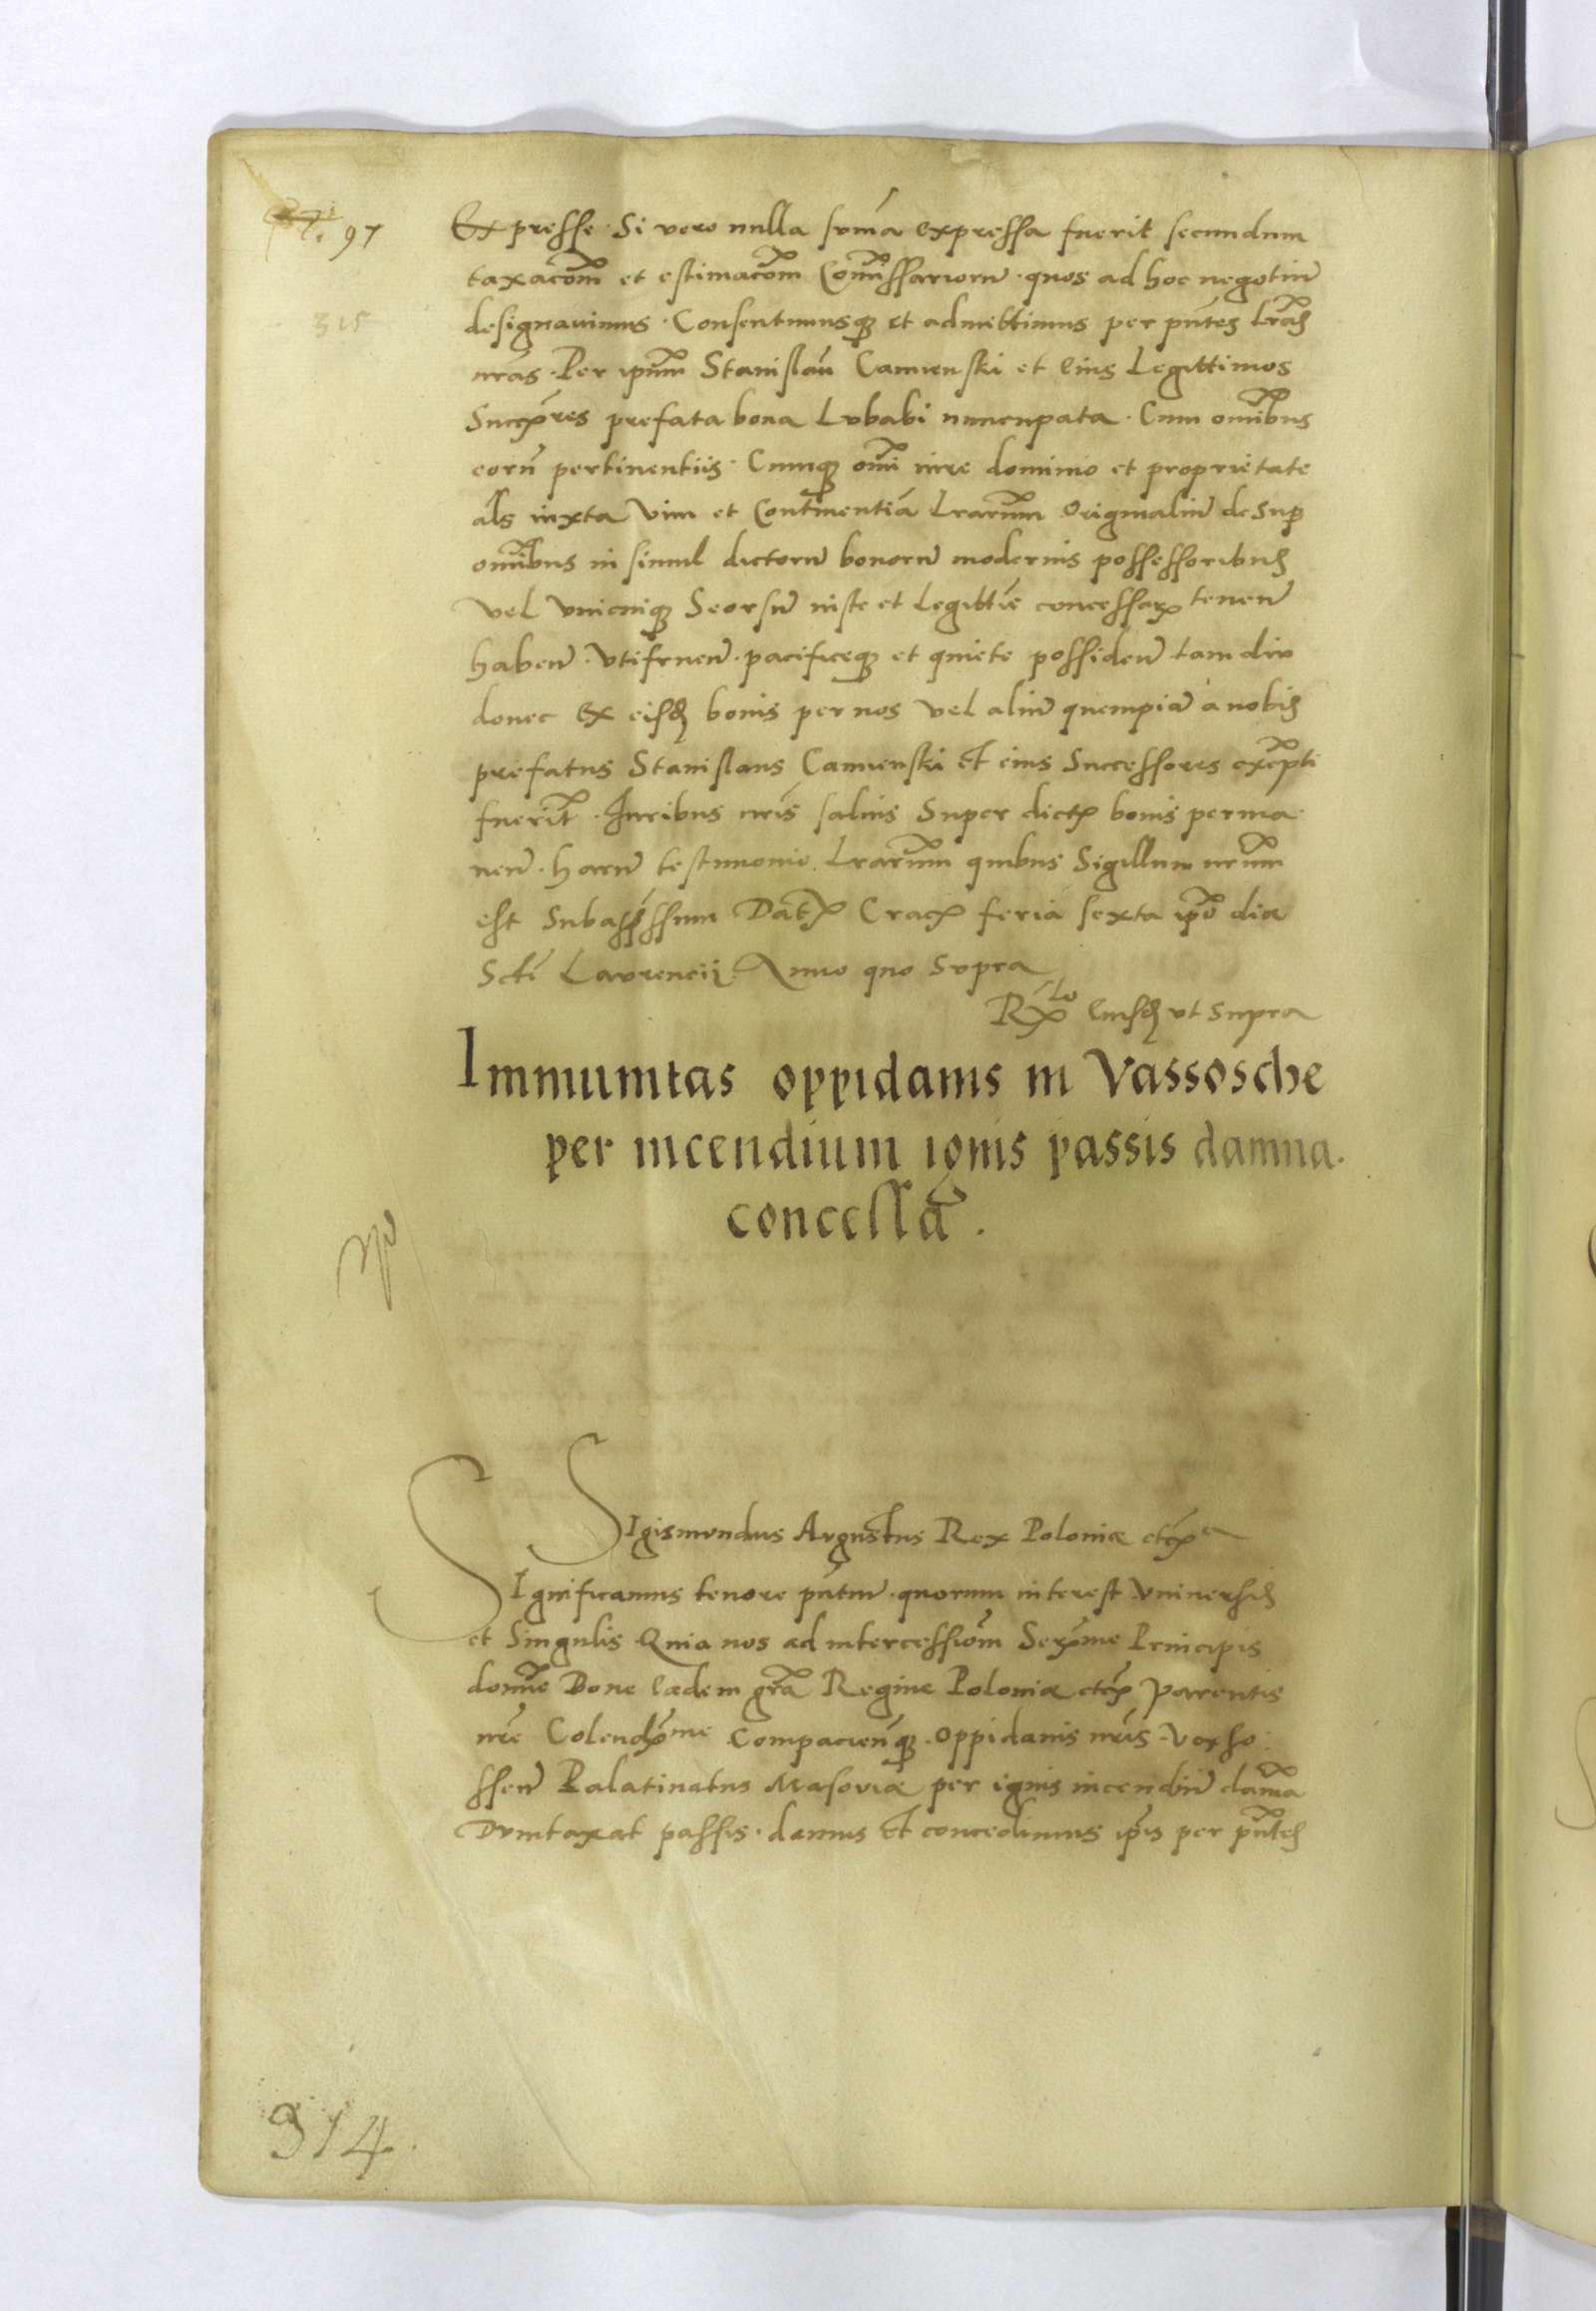 97
315
Expresse. Si vero nulla sum̄a expressa fuerit secundum
taxacōm et estimacōm Com̄issariorū. quos ad hoc negotiū
designauimus. Consentimusq₃ et admittimus per pn̄tes lr̄as
nr̄as. Per ipm̄ Stanislaū Camienski et eius Legittimos
Succr̄es prefata bona Lubabi nuncupata. Cum om̄ibus
eorū pertinentiis. Cumq₃ om̄i iure dominio et proprietate
al̄s iuxta vim et Continentiā Lrarum̄ Originaliū desup
om̄ibus in simul dictorū bonorū modernis possessoribus
vel vnicuiq₃ Seorsū iuste et Legittīe concessarꝝ tenen̄
haben̄. vtifruen̄. pacificeq₃ et quiete possiden̄ tam diu
donec ex eisd̄ bonis per nos vel aliū quempiā a nobis
prefatus Stanislaus Camienski et eius Successores exēpti
fuerīt. Iuribus nr̄is saluis Super dictꝭ bonis perma
nen̄. harū testimonio Lrarum̄ quibus Sigillum nr̄um
est Subappr̄ssum Datꝭ Cracꝭ feria sexta ip̄o die
Scti Laurencii. Anno quo supra
Rꝭto eiusd̄ vt supra
Immunitas oppidanis in Vassosche
per incendium ignis passis damna.
concessa.
Sigismundus Augustus Rex Poloniæ etcꝭa
Significamus tenore pn̄tiū. quorum interest vniuersis
et Singulis Quia nos ad intercessiōm Serꝭme Principis
domīe Bone eadem gr̄a Regine Poloniæ etcꝭ parentis
nr̄e Colendꝭme Compacien̄q₃. Oppidanis nr̄is. Voxso
ssen̄ Palatinatus Masoviæ per ignis incendiū dam̄a
Duntaxat passis. damus et concedimus ip̄is per pn̄tes
314.